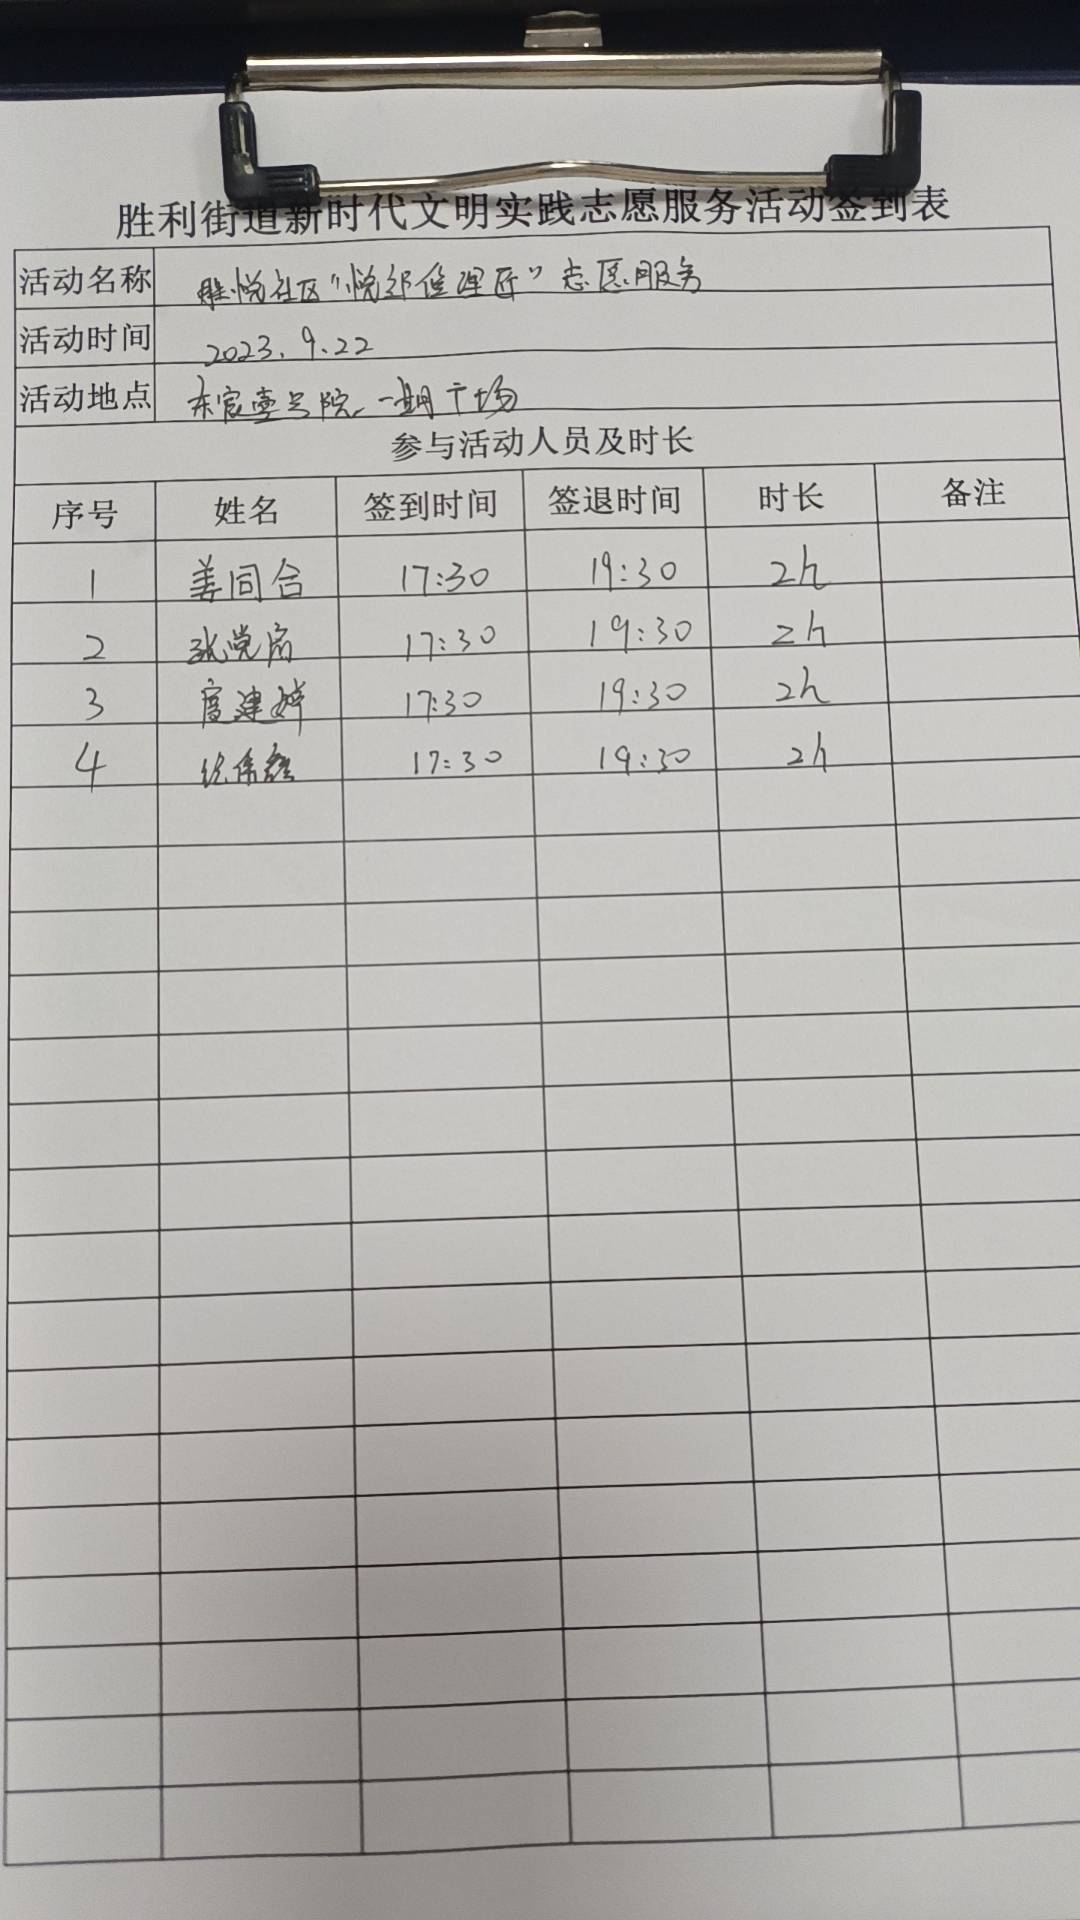 胜利街道新时代文明实践志愿服务活动签到表
活动名称 胜悦社区“悦邻修理匠”志愿服务
活动时间 2023.9.22
活动地点 东宸壹号院一期广场
参与活动人员及时长
序号 姓名 签到时间 签退时间 时长 备注
1 姜同合 17:30 19:30 2h
2 张党 17:30 19:30 2h
3 建婷 17:30 19:30 2h
4 17:30 19:30 2h